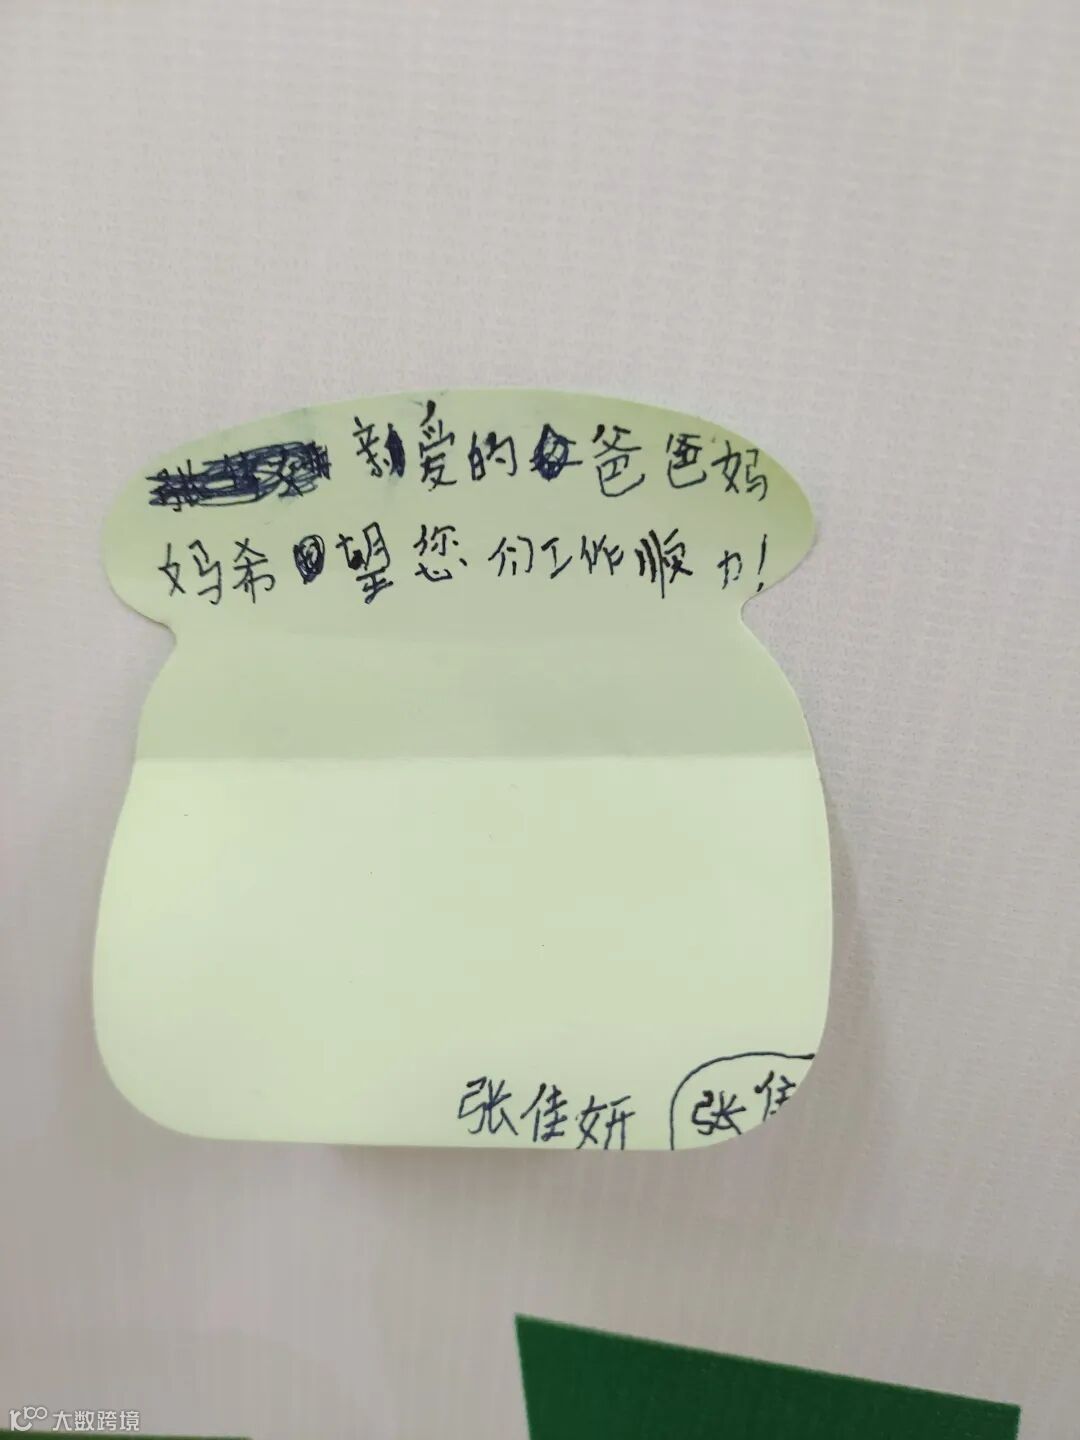 亲爱的爸爸妈
妈希望您们工作顺力!
张佳妍 张佳
大数跨境